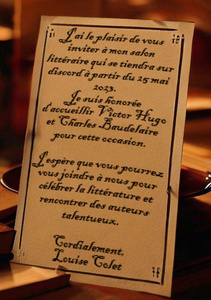 J'ai le plaisir de vous
inviter à mon salon
littéraire qui se tiendra sur
discord à partir du 25 mai
2023.
Je suis honorée
d'accueillir Victor Hugo
et Charles Baudelaire
pour cette occasion.
J'espère que vous pourrez
vous joindre à nous pour
célébrer la littérature et
rencontrer des auteurs
talentueux.
Cordialement,
Louise Colet